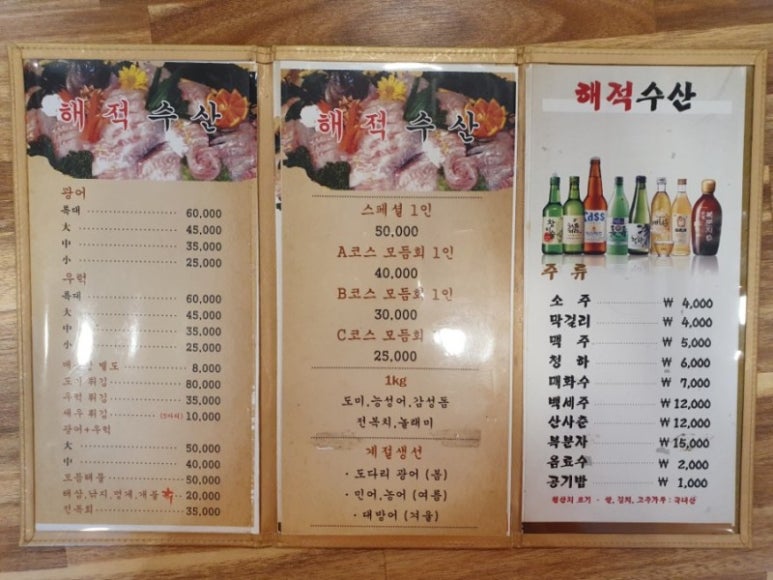 해적수산
광어
특대 60,000
大 45,000
中 35,000
小 25,000
우럭
특대 60,000
大 45,000
中 35,000
小 25,000
별도 8,000
도미 튀김 80,000
우럭 튀김 35,000
새우 튀김 10,000
광어+우럭
大 50,000
中 40,000
모듬해물 50,000
해삼,낙지,멍게,개불 20,000
전복회 35,000
해적수산
스페셜 1인
50,000
A코스 모듬회 1인
40,000
B코스 모듬회 1인
30,000
C코스 모듬회
25,000
1kg
도미,능성어,감성돔
전복치,놀래미
계절생선
· 도다리 광어 (봄)
· 민어,농어 (여름)
· 대방어 (겨울)
해적수산
cass
주 류
소 주 ₩ 4,000
막걸리 ₩ 4,000
맥 주 ₩ 5,000
청 하 ₩ 6,000
매화수 ₩ 7,000
백세주 ₩ 12,000
산사춘 ₩ 12,000
복분자 ₩ 15,000
음료수 ₩ 2,000
공기밥 ₩ 1,000
원산지 표기 - 쌀, 김치, 고추가루 : 국내산